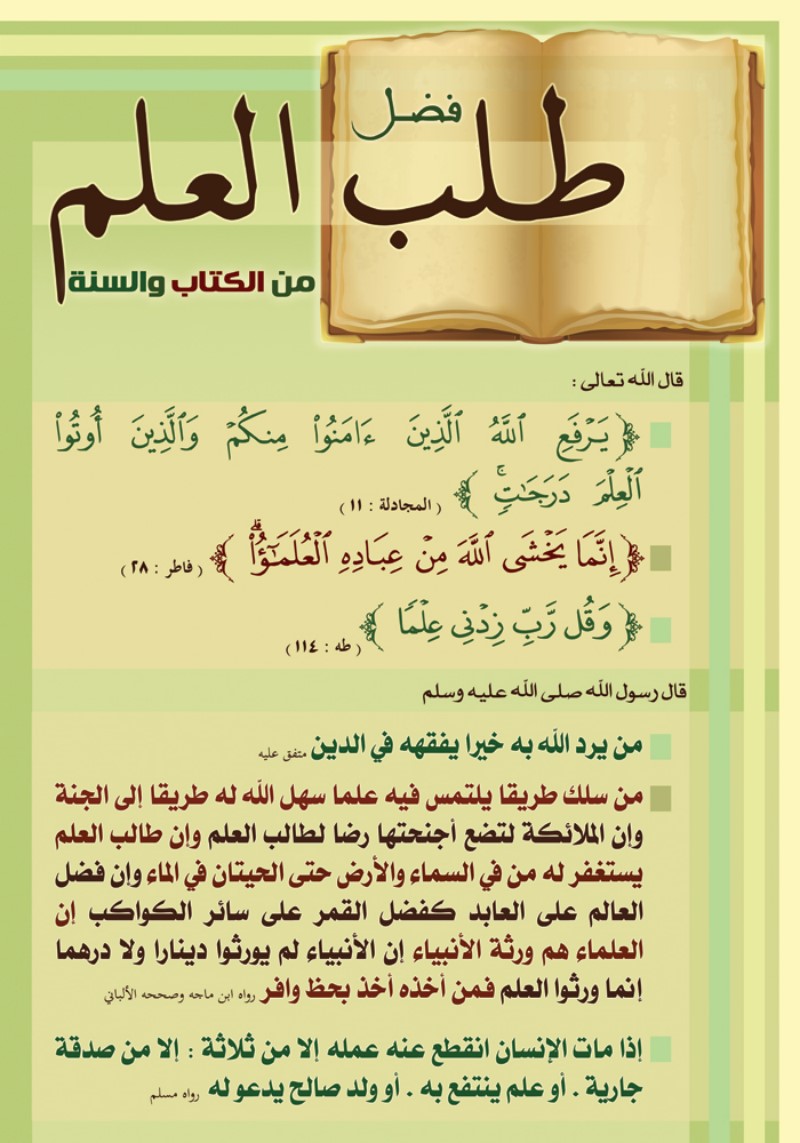 فضل
طلب العلم
من الكتاب والسنة
قال الله تعالى :
﴿ يَرْفَعِ ٱللَّهُ ٱلَّذِينَ ءَامَنُوا۟ مِنكُمْ وَٱلَّذِينَ أُوتُوا۟
ٱلْعِلْمَ دَرَجَـٰتٍۚ ﴾ ( المجادلة : ١١ )
﴿ إِنَّمَا يَخْشَى ٱللَّهَ مِنْ عِبَادِهِ ٱلْعُلَمَـٰٓؤُا۟ۗ ﴾ ( فاطر : ٢٨ )
﴿ وَقُل رَّبِّ زِدْنِى عِلْمًا ﴾ ( طه : ١١٤ )
قال رسول الله صلى الله عليه وسلم
من يرد الله به خيرا يفقهه في الدين متفق عليه
من سلك طريقا يلتمس فيه علما سهل الله له طريقا إلى الجنة
وإن الملائكة لتضع أجنحتها رضا لطالب العلم وإن طالب العلم
يستغفر له من في السماء والأرض حتى الحيتان في الماء وإن فضل
العالم على العابد كفضل القمر على سائر الكواكب إن
العلماء هم ورثة الأنبياء إن الأنبياء لم يورثوا دينارا ولا درهما
إنما ورثوا العلم فمن أخذه أخذ بحظ وافر رواه ابن ماجه وصححه الألباني
إذا مات الإنسان انقطع عنه عمله إلا من ثلاثة : إلا من صدقة
جارية . أو علم ينتفع به . أو ولد صالح يدعو له رواه مسلم